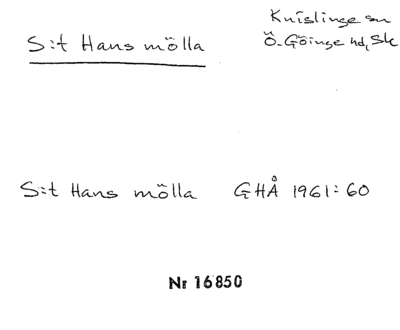 Knislinge sn
S:t Hans mölla
Ö-Göinge hd, Sk
S:t Hans mölla GHÅ 1961:60
Nr 16850